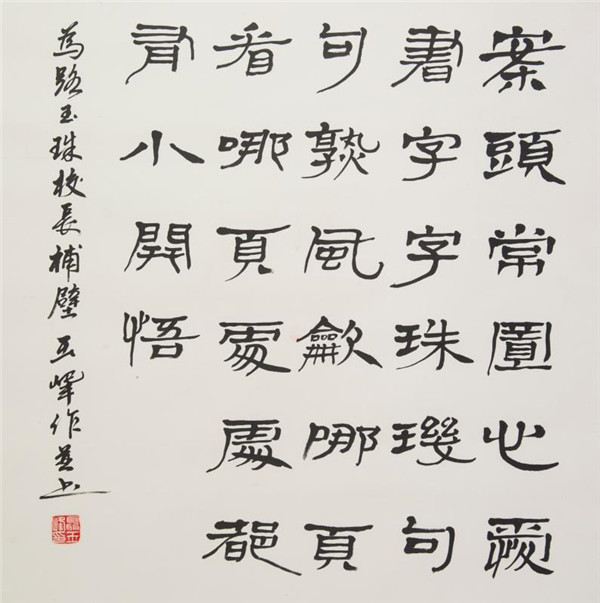 案頭常置心
書字字珠璣句
句熟風龡哪頁
看哪頁處處都
有小開悟
為路玉珠校長補壁 作並書